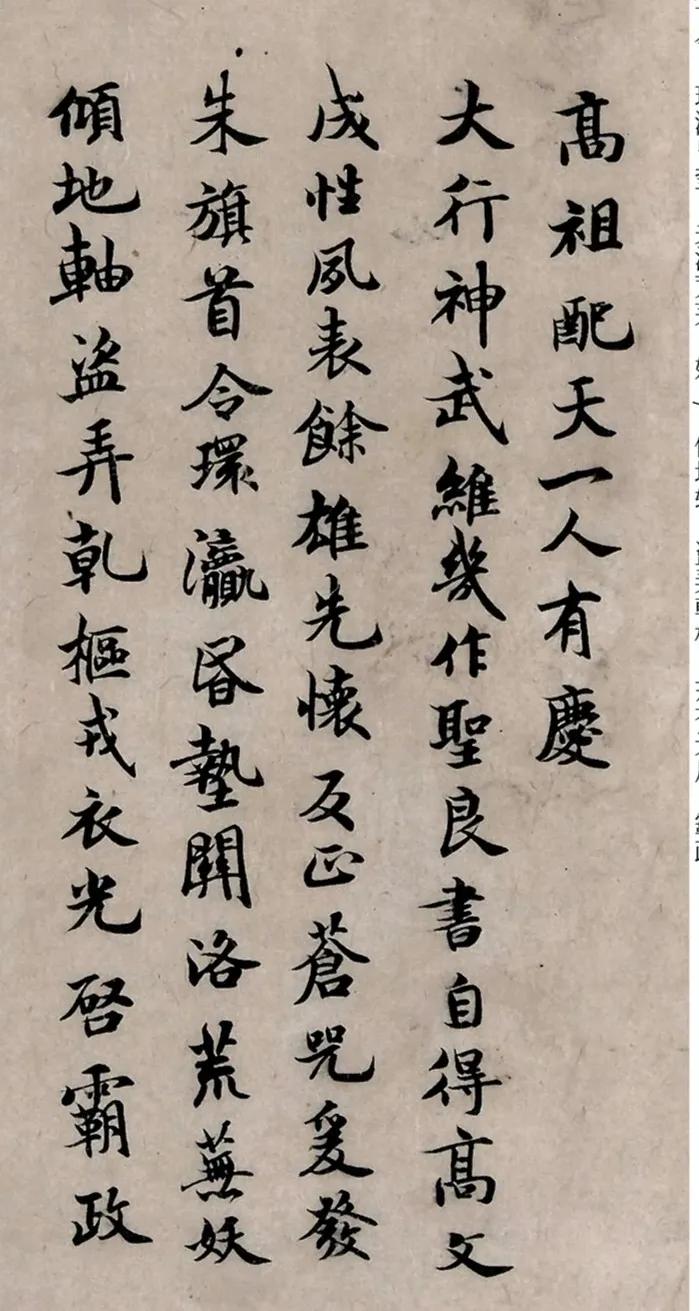 髙祖配天一人有慶
大行神武維幾作聖良書自得髙文
成性夙表餘雄先懷反正蒼兕爰發
朱旗首令環瀛昏墊關洛荒蕪妖
傾地軸盜弄乹樞戎衣光啓霸政